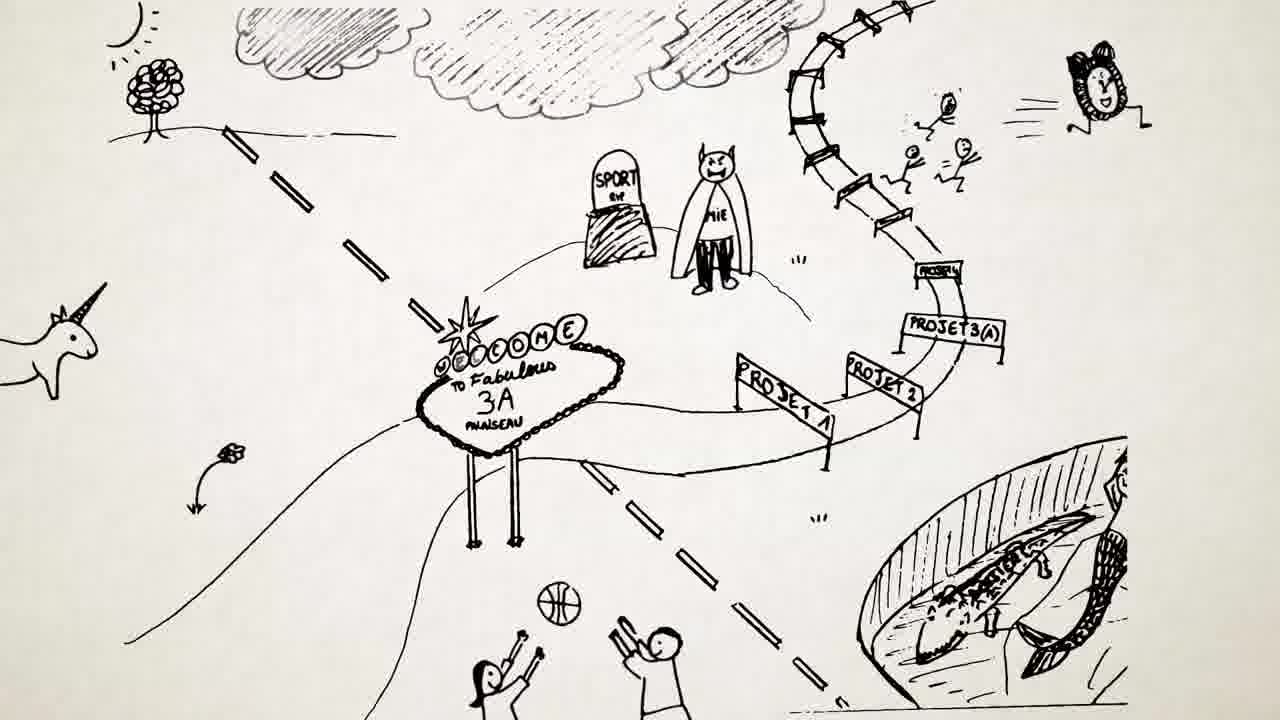 SPORT
RIP
MIE
WELCOME
TO Fabulous
3A
PALAISEAU
PROJET 1
PROJET 2
PROJET 3(A)
PROJET 4